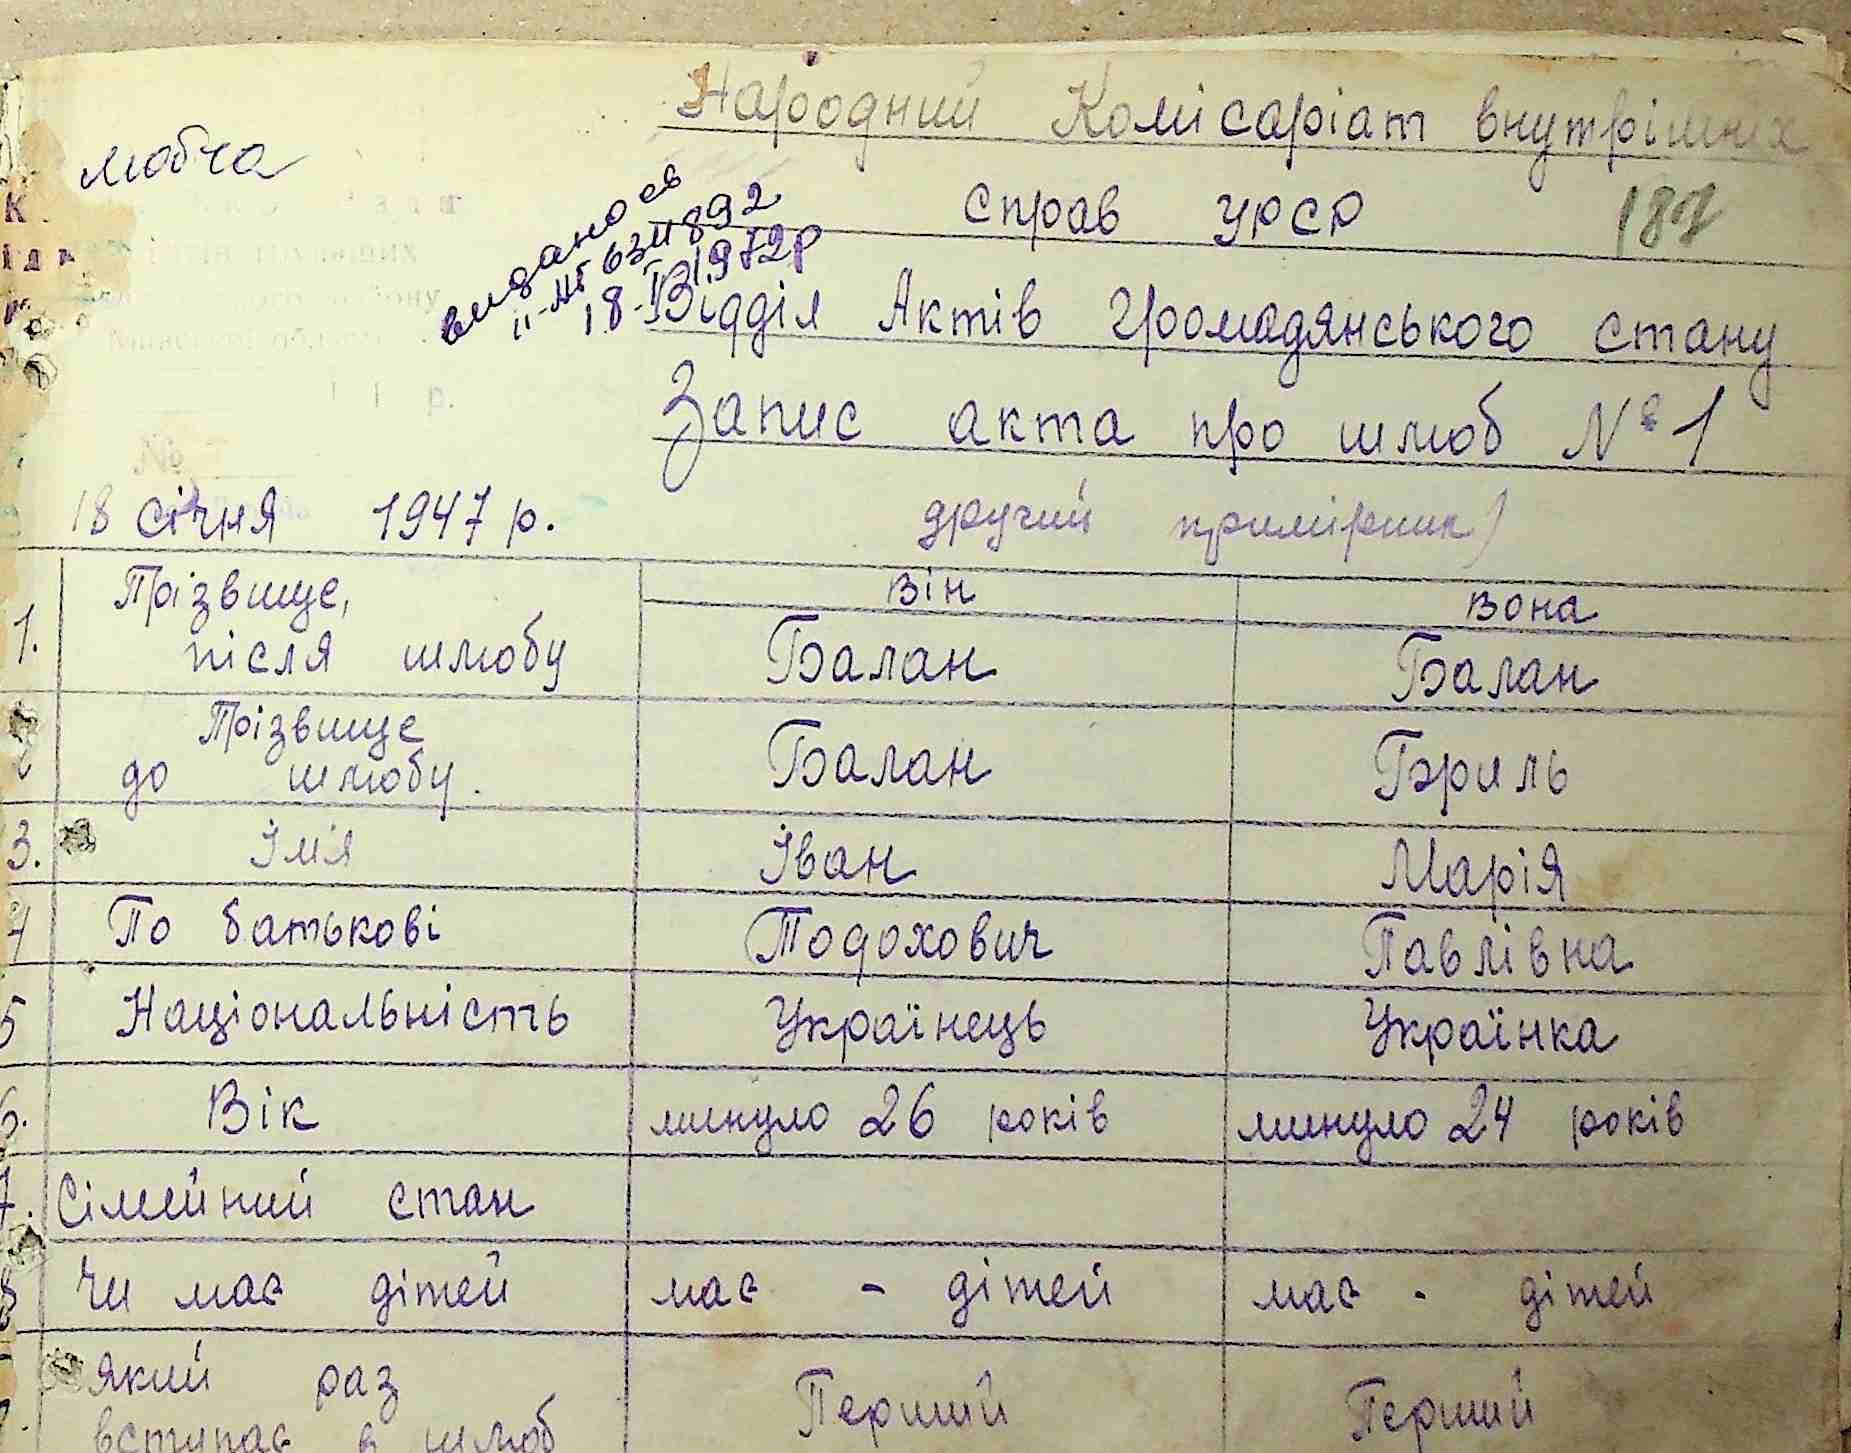 Народний Комісаріат внутрішних
любча
справ УРСР
187
видано св
II-МБ 6311892
18-IV 1972р
Відділ Актів Громадянського стану
Запис акта про шлюб № 1
18 січня 1947 р.
другий примірник)
1. Прізвище, після шлюбу
Він
Вона
Балан
Балан
Прізвище до шлюбу.
Балан
Бриль
3. Імя
Іван
Марія
4 По батькові
Тодохович
Павлівна
5 Національність
Українець
Українка
6. Вік
минуло 26 років
минуло 24 років
7. Сімейний стан
8 Чи має дітей
має - дітей
має - дітей
який раз
вступає в шлюб
Перший
Перший